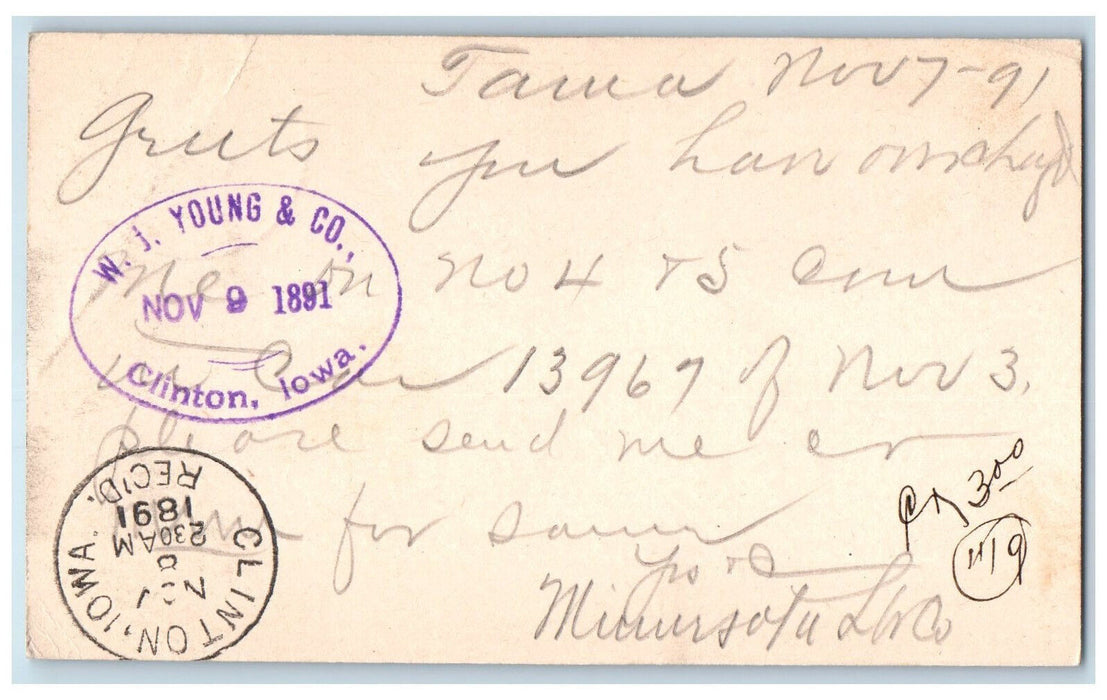 Tama Nov 7-91
Gents you have overchgd
me on No 4 & 5 Com
in Car 13967 of Nov 3.
please send me cr
for same
Yrs &c
Minnesota L Co
W. J. YOUNG & CO.,
NOV 9 1891
Clinton, Iowa.
CLINTON, IOWA.
NOV
230AM
1891
REC'D.
Cr 3 00
11/9